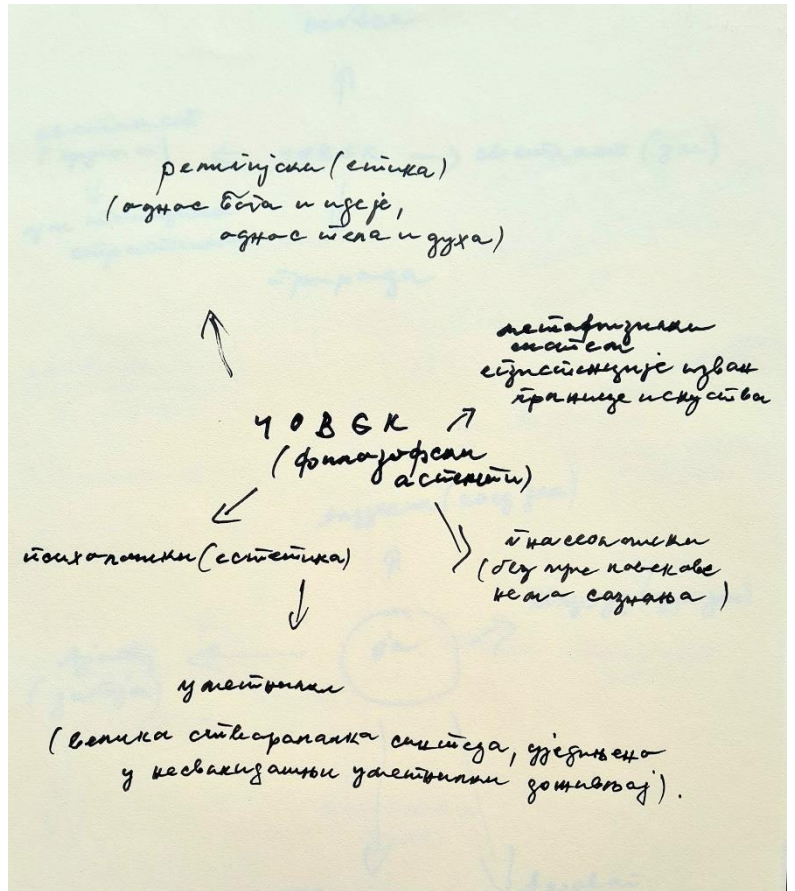 религијски (етика)
(однос бога и идеје,
однос тела и духа)
метафизички
систем
егзистенције изван
границе искуства
ЧОВЕК
(филозофски
аспекти)
психолошки (естетика)
гносеолошки
(без мре човекове
нема сазнања)
уметнички
(велика стваралачка синтеза, уједињена
у несвакидашњи уметнички доживљај).